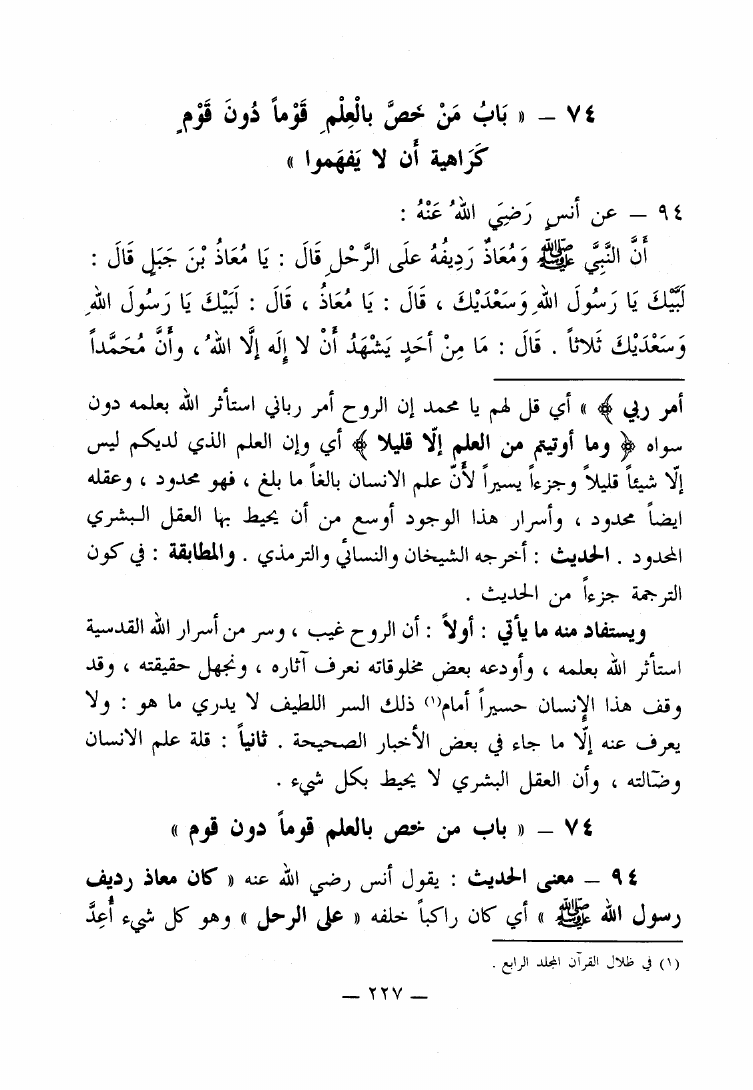 ٧٤ – « بَابُ مَنْ خَصَّ بالْعِلْمِ قَوْماً دُونَ قَوْمٍ
كَرَاهية أَن لا يَفهَموا »
٩٤ – عن أنسٍ رَضِيَ اللهُ عَنْهُ :
أَنَّ النَّبِيَّ ﷺ وَمُعَاذٌ رَدِيفُهُ علَى الرَّحْلِ قَالَ : يَا مُعَاذُ بْنَ جَبَلٍ قَالَ :
لَبَّيْكَ يَا رَسُولَ اللهِ وَسَعْدَيْكَ ، قَالَ : يَا مُعَاذُ ، قَالَ : لَبَيْكَ يَا رَسُولَ اللهِ
وَسَعْدَيْكَ ثَلاثاً . قَالَ : مَا مِنْ أحَدٍ يَشْهَدُ أَنْ لا إِلَه إِلَّا اللهُ ، وأَنَّ مُحَمَّداً
أمر ربي ﴾ » أي قل لهم يا محمد إن الروح أمر رباني استأثر الله بعلمه دون
سواه ﴿ وما أوتيتم من العلم إلّا قليلا ﴾ أي وإن العلم الذي لديكم ليس
إلّا شيئاً قليلاً وجزءاً يسيراً لأنّ علم الانسان بالغاً ما بلغ ، فهو محدود ، وعقله
ايضاً محدود ، وأسرار هذا الوجود أوسع من أن يحيط بها العقل البشري
المحدود . الحديث : أخرجه الشيخان والنسائي والترمذي . والمطابقة : في كون
الترجمة جزءاً من الحديث .
ويستفاد منه ما يأتي : أولاً : أن الروح غيب ، وسر من أسرار الله القدسية
استأثر الله بعلمه ، وأودعه بعض مخلوقاته نعرف آثاره ، ونجهل حقيقته ، وقد
وقف هذا الإنسان حسيراً أمام(١) ذلك السر اللطيف لا يدري ما هو : ولا
يعرف عنه إلّا ما جاء في بعض الأخبار الصحيحة . ثانياً : قلة علم الانسان
وضآلته ، وأن العقل البشري لا يحيط بكل شيء .
٧٤ – « باب من خص بالعلم قوماً دون قوم »
٩٤ – معنى الحديث : يقول أنس رضي الله عنه « كان معاذ رديف
رسول الله ﷺ » أي كان راكباً خلفه « على الرحل » وهو كل شيء أُعِدَّ
(١) في ظلال القرآن المجلد الرابع .
– ٢٢٧ –